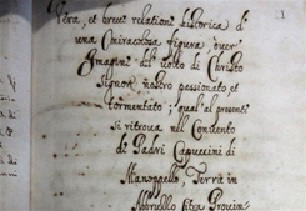 1
Vera, et breve relatione historica d'
una miracolosa figura, o ver'
Imagine del volto di Christo
Signor nostro passionato, et
tormentato; qual' al presente
si ritroua nell Conuento
di Padri Capuccini di
Manoppello, Terra in
Abbruzzo Citra Prouin=